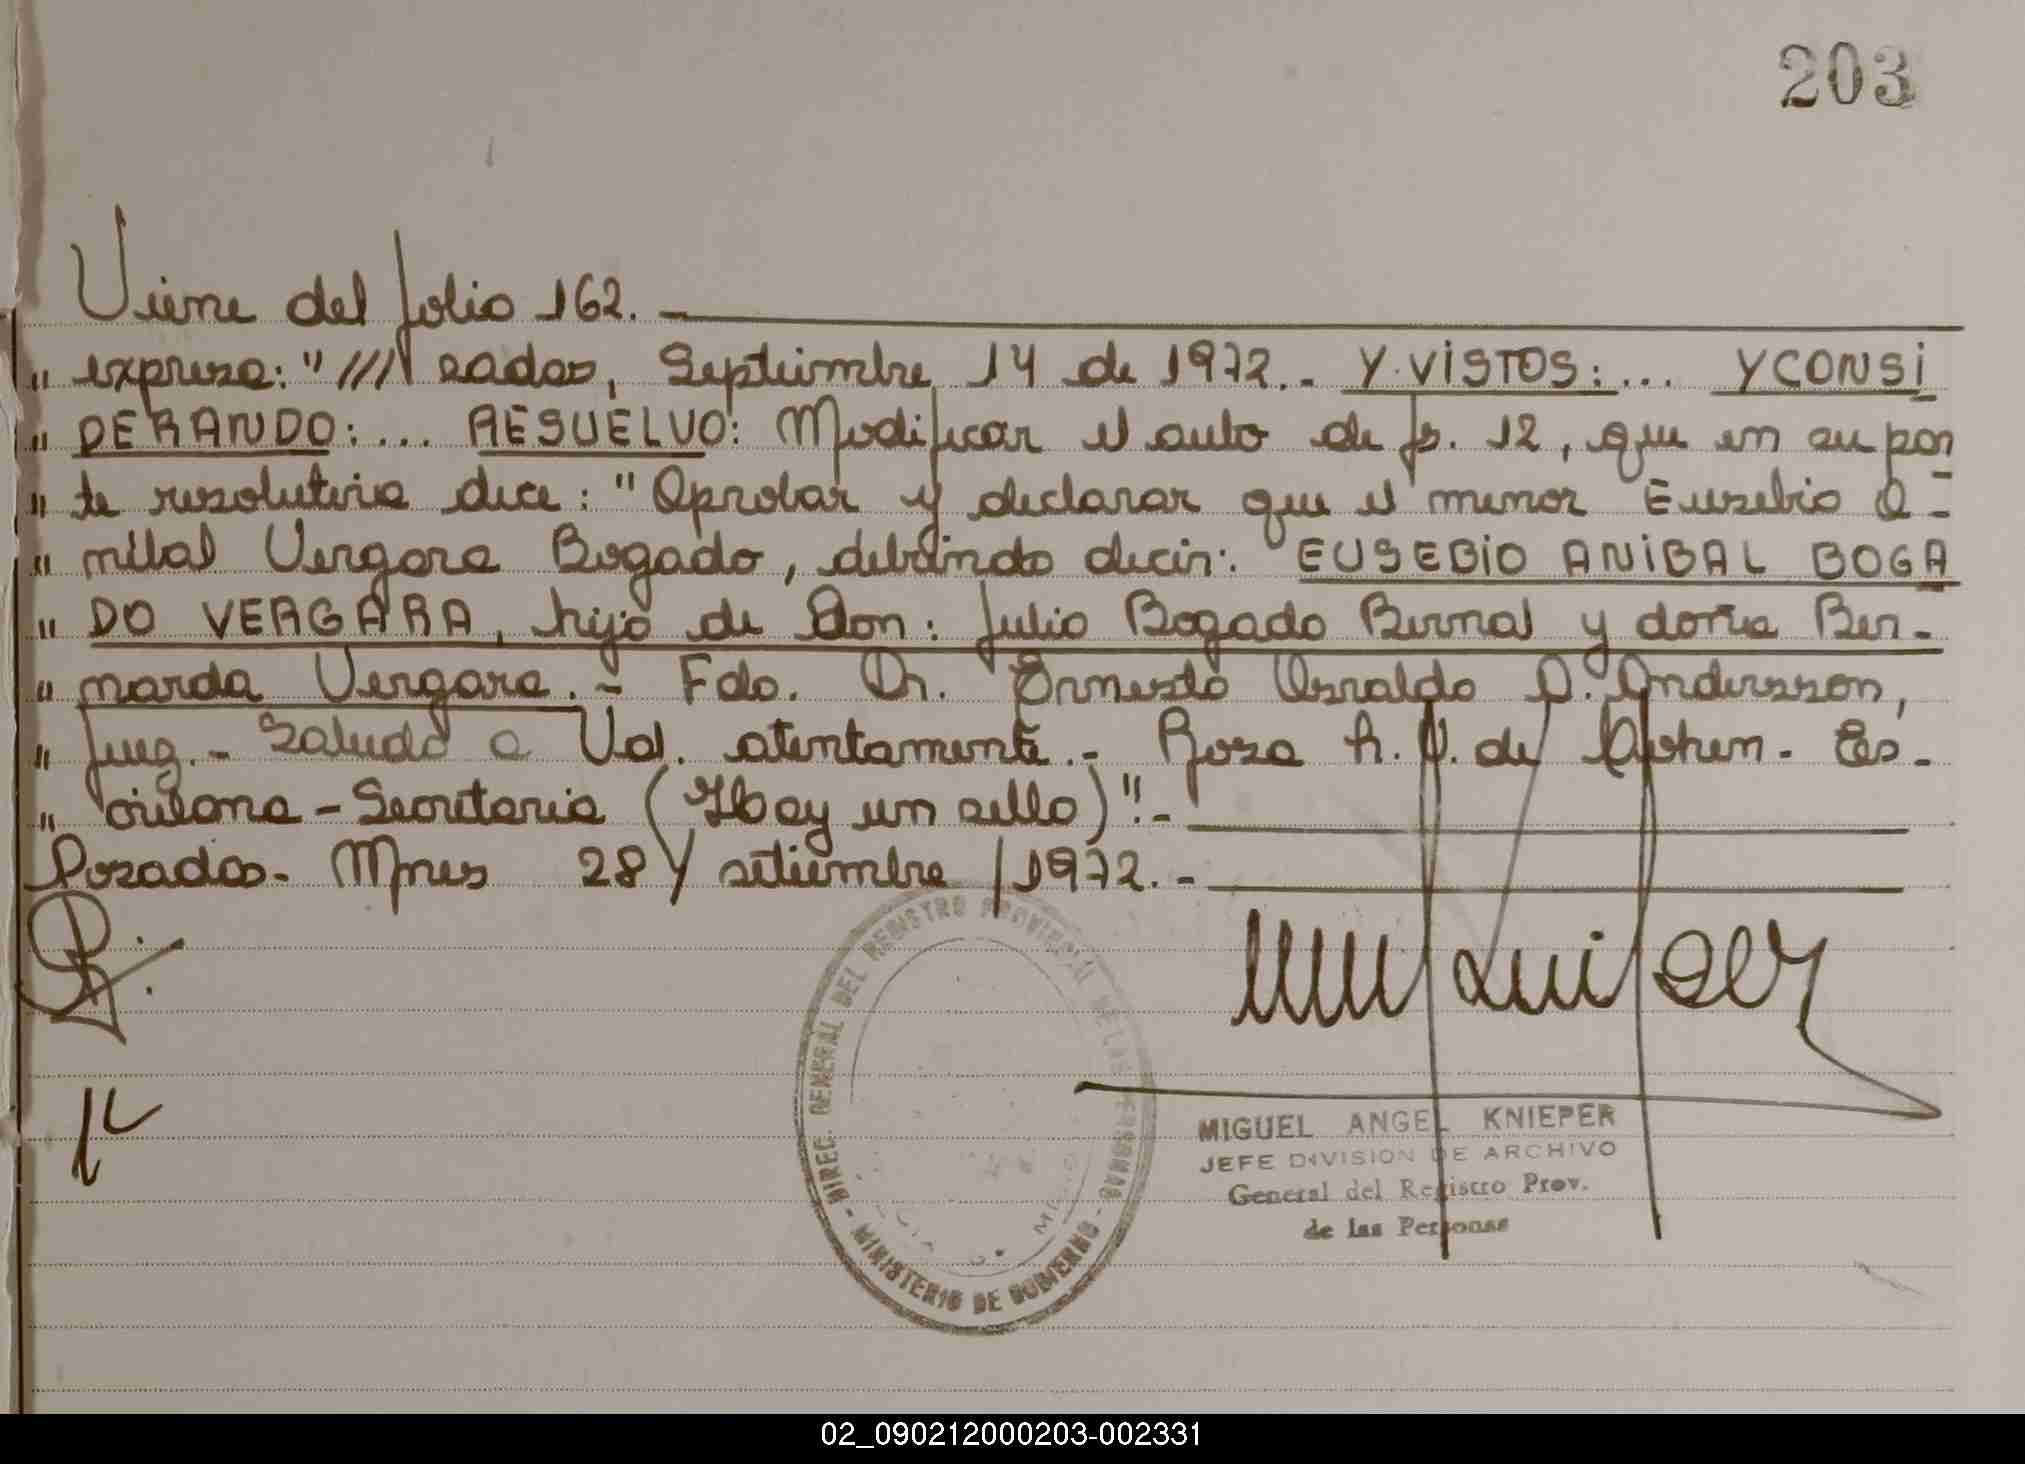 203
Viene del folio 162. —
" expresa: "/// sadas, Septiembre 14 de 1972.- Y VISTOS:... Y CONSI
" DERANDO:... RESUELVO: Modificar el auto de fs. 12, que en su par
" te resolutiva dice: "Aprobar y declarar que el menor Eusebio A-
" nibal Vergara Bogado, debiendo decir: EUSEBIO ANIBAL BOGA
" DO VERGARA, hijo de Don: Julio Bogado Bernal y doña Ber-
" narda Vergara.- Fdo. Dr. Ernesto Osvaldo A. Andersson,
" Juez.- Saludo a Ud. atentamente.- Rosa h. de Cohen- Es-
" cribana-Secretaria (Hay un sello)".-
Posadas- Mnes 28 / setiembre / 1972.-
DIREC. GENERAL DEL REGISTRO PROVINCIAL DE LAS PERSONAS
- MINISTERIO DE GOBIERNO -
MIGUEL ANGEL KNIEPER
JEFE DIVISION DE ARCHIVO
General del Registro Prov.
de las Personas
02_090212000203-002331